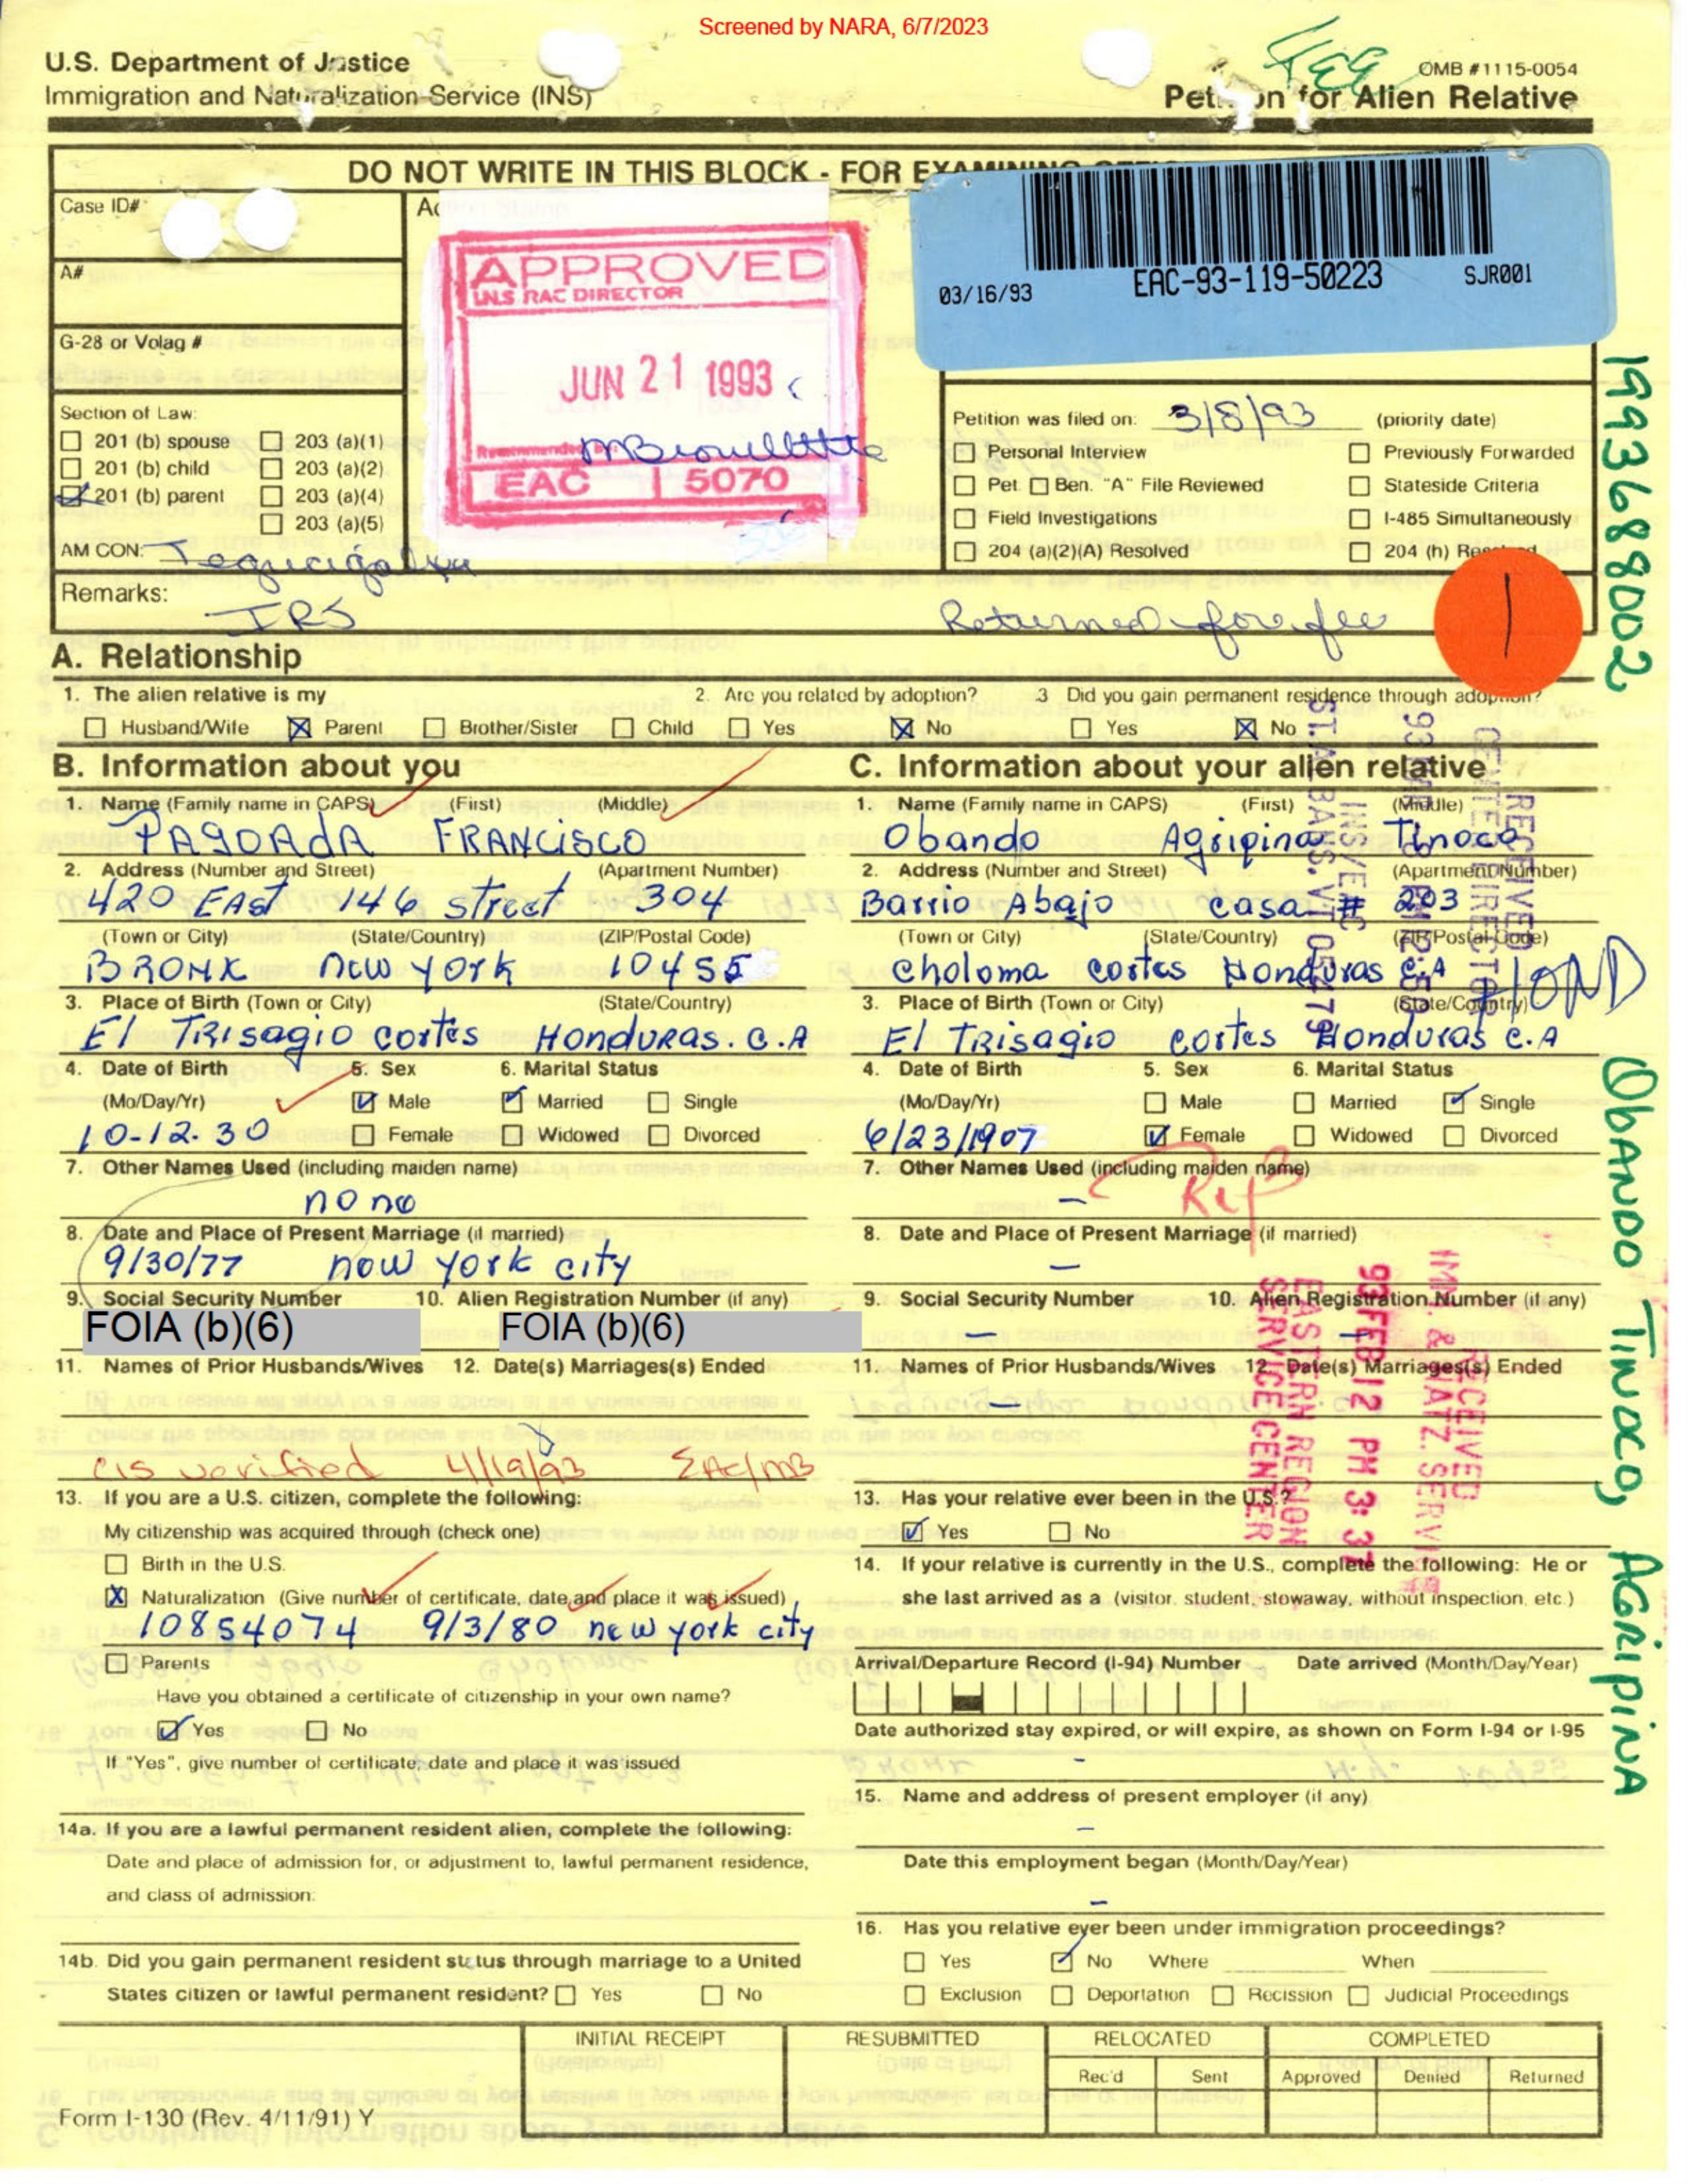 Screened by NARA, 6/7/2023
U.S. Department of Justice
Immigration and Naturalization Service (INS)
OMB #1115-0054
Petition for Alien Relative
DO NOT WRITE IN THIS BLOCK - FOR EXAMINING
Case ID#
A#
G-28 or Volag #
APPROVED
INS RAC DIRECTOR
JUN 21 1993
EAC 5070
03/16/93 EAC-93-119-50223 SJR001
Section of Law:
201 (b) spouse 203 (a)(1)
201 (b) child 203 (a)(2)
201 (b) parent 203 (a)(4)
203 (a)(5)
AM CON: Tegucigalpa
Petition was filed on: 3/8/93 (priority date)
Personal Interview Previously Forwarded
Pet. Ben. "A" File Reviewed Stateside Criteria
Field Investigations I-485 Simultaneously
204 (a)(2)(A) Resolved 204 (h) Resolved
Remarks:
IRS
Returned for fee
1
1993688002
A. Relationship
1. The alien relative is my 2. Are you related by adoption? 3 Did you gain permanent residence through adoption?
Husband/Wife X Parent Brother/Sister Child Yes X No Yes X No
B. Information about you
1. Name (Family name in CAPS) (First) (Middle)
PAGOAdA FRANCISCO
2. Address (Number and Street) (Apartment Number)
420 EAst 146 street 304
(Town or City) (State/Country) (ZIP/Postal Code)
BRONX new york 10455
3. Place of Birth (Town or City) (State/Country)
El TRISagio cortes HonduRas. C.A
4. Date of Birth 5. Sex 6. Marital Status
(Mo/Day/Yr) Male Married Single
10-12-30 Female Widowed Divorced
7. Other Names Used (including maiden name)
none
8. Date and Place of Present Marriage (if married)
9/30/77 new york city
9. Social Security Number 10. Alien Registration Number (if any)
FOIA (b)(6) FOIA (b)(6)
11. Names of Prior Husbands/Wives 12. Date(s) Marriages(s) Ended
CIS verified 4/19/93 EAC/MB
13. If you are a U.S. citizen, complete the following:
My citizenship was acquired through (check one)
Birth in the U.S.
X Naturalization (Give number of certificate, date and place it was issued)
10854074 9/3/80 new york city
Parents
Have you obtained a certificate of citizenship in your own name?
Yes No
If "Yes", give number of certificate, date and place it was issued
14a. If you are a lawful permanent resident alien, complete the following:
Date and place of admission for, or adjustment to, lawful permanent residence,
and class of admission:
14b. Did you gain permanent resident status through marriage to a United
States citizen or lawful permanent resident? Yes No
C. Information about your alien relative
1. Name (Family name in CAPS) (First) (Middle)
Obando Agripina Tinoco
2. Address (Number and Street) (Apartment Number)
Barrio Abajo casa # 203
(Town or City) (State/Country) (ZIP/Postal Code)
Choloma cortes Honduras C.A
HOND
3. Place of Birth (Town or City) (State/Country)
El TRISagio cortes Honduras C.A
4. Date of Birth 5. Sex 6. Marital Status
(Mo/Day/Yr) Male Married Single
6/23/1907 Female Widowed Divorced
7. Other Names Used (including maiden name)
-
8. Date and Place of Present Marriage (if married)
-
9. Social Security Number 10. Alien Registration Number (if any)
-
11. Names of Prior Husbands/Wives 12. Date(s) Marriages(s) Ended
-
13. Has your relative ever been in the U.S.?
Yes No
14. If your relative is currently in the U.S., complete the following: He or
she last arrived as a (visitor, student, stowaway, without inspection, etc.)
Arrival/Departure Record (I-94) Number Date arrived (Month/Day/Year)
Date authorized stay expired, or will expire, as shown on Form I-94 or I-95
-
15. Name and address of present employer (if any)
-
Date this employment began (Month/Day/Year)
-
16. Has you relative ever been under immigration proceedings?
Yes No Where When
Exclusion Deportation Recission Judicial Proceedings
RECEIVED
INS/VEC
ST. ALBANS, VT 05479
RECEIVED
IMM. & NATZ. SERVICE
93 FEB 12 PM 3:37
EASTERN REGION
SERVICE CENTER
ObANDO TINOCO, AGRIPINA
INITIAL RECEIPT RESUBMITTED RELOCATED COMPLETED
Rec'd Sent Approved Denied Returned
Form I-130 (Rev. 4/11/91) Y